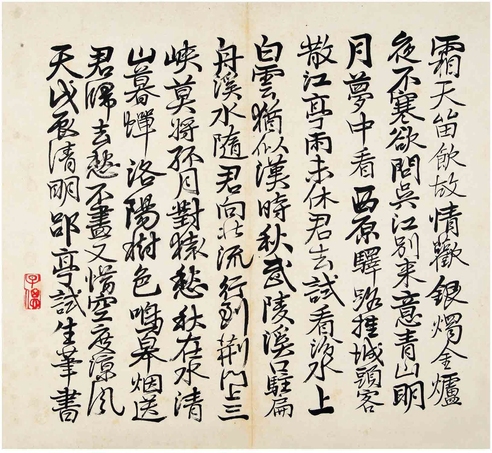 霜天留飲故情歡銀燭金爐
夜不寒欲問吳江別來意青山明
月夢中看 西原驛路挂城頭客
散江亭雨未休君去試看汾水上
白雲猶似漢時秋武陵溪口駐扁
舟溪水隨君向北流行到荆門上三
峽莫將孤月對猿愁秋在水清
山暮蟬洛陽樹色鳴皋烟送
君歸去愁不盡又惜空度涼風
天戊辰清明郘亭試生筆書
子偲